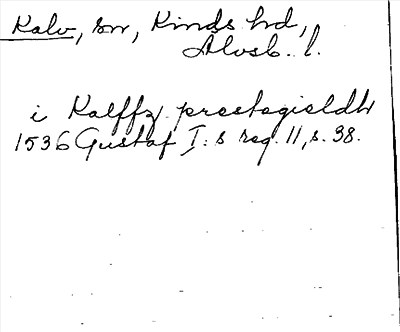 Kalv, sn, Kinds hd,
Älvsb. l.
i Kalffz prestagieldh
1536 Gustaf I:s reg. 11, s. 38.